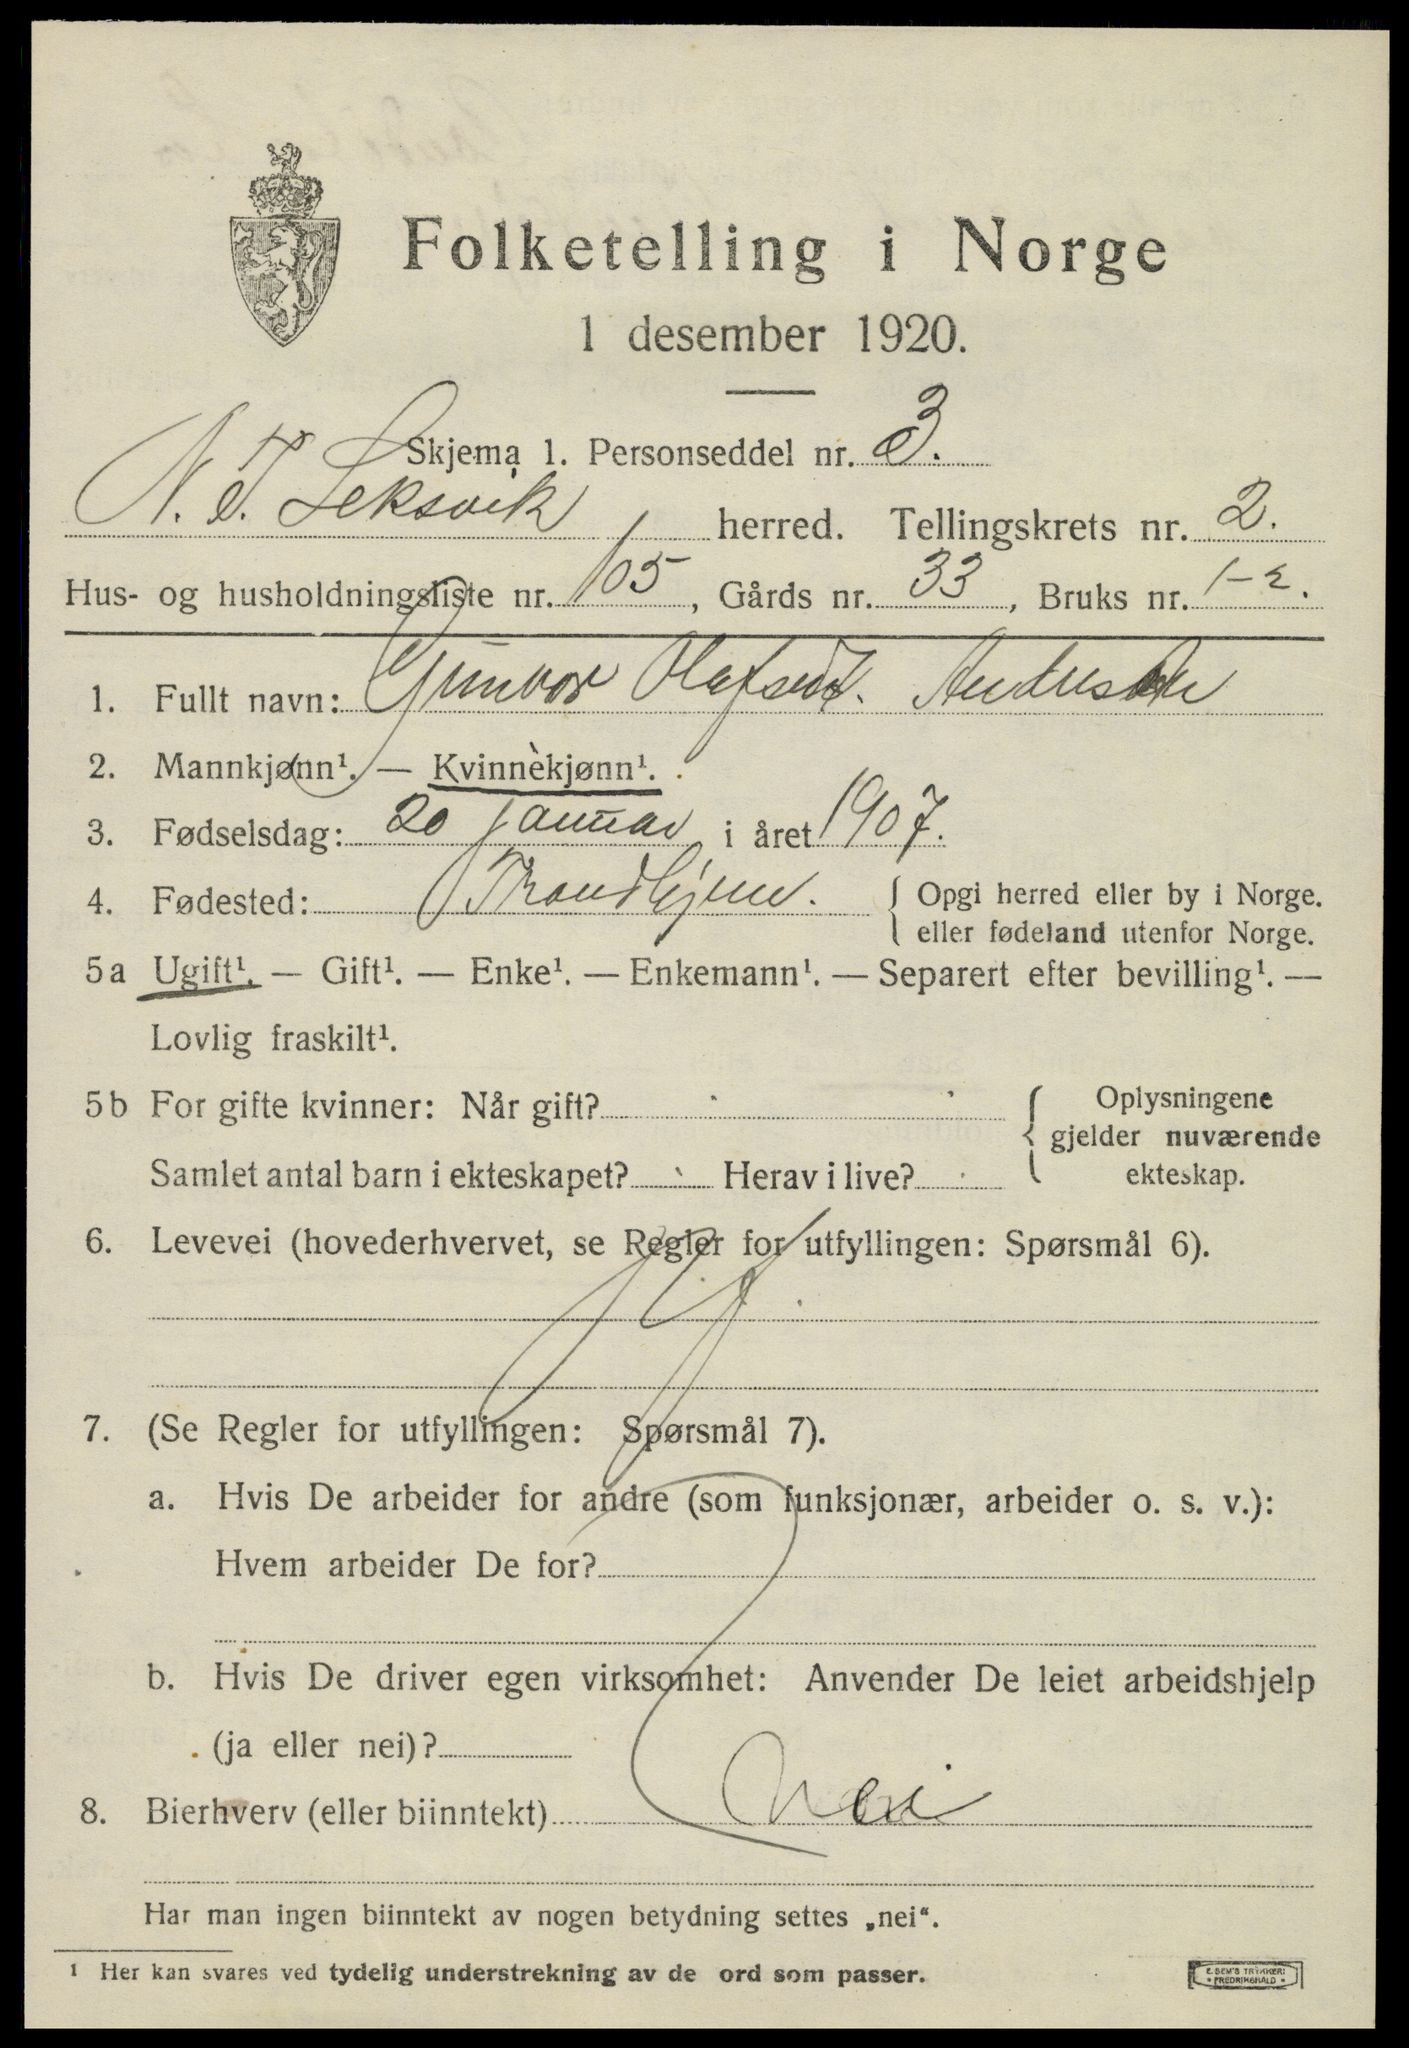 Folketelling i Norge
1 desember 1920.
Skjema 1. Personseddel nr. 3.
N. T. Leksvik herred. Tellingskrets nr. 2.
Hus- og husholdningsliste nr. 105, Gårds nr. 33, Bruks nr. 1-2.
1. Fullt navn: Gunvor Olafsdt.
2. Mannkjønn¹. — Kvinnekjønn¹.
3. Fødselsdag: 20 januar i året 1907.
4. Fødested: Trondhjem. { Opgi herred eller by i Norge.
eller fødeland utenfor Norge.
5a Ugift¹. — Gift¹. — Enke¹. — Enkemann¹. — Separert efter bevilling¹. —
Lovlig fraskilt¹.
5b For gifte kvinner: Når gift?
Samlet antal barn i ekteskapet? Herav i live?
Oplysningene
gjelder nuværende
ekteskap.
6. Levevei (hovederhvervet, se Regler for utfyllingen: Spørsmål 6).
7. (Se Regler for utfyllingen: Spørsmål 7).
a. Hvis De arbeider for andre (som funksjonær, arbeider o. s. v.):
Hvem arbeider De for?
b. Hvis De driver egen virksomhet: Anvender De leiet arbeidshjelp
(ja eller nei)?
8. Bierhverv (eller biinntekt) Nei
Har man ingen biinntekt av nogen betydning settes „nei“.
¹ Her kan svares ved tydelig understrekning av de ord som passer.
E. SEM'S TRYKKERI
• FREDRIKSHALD •